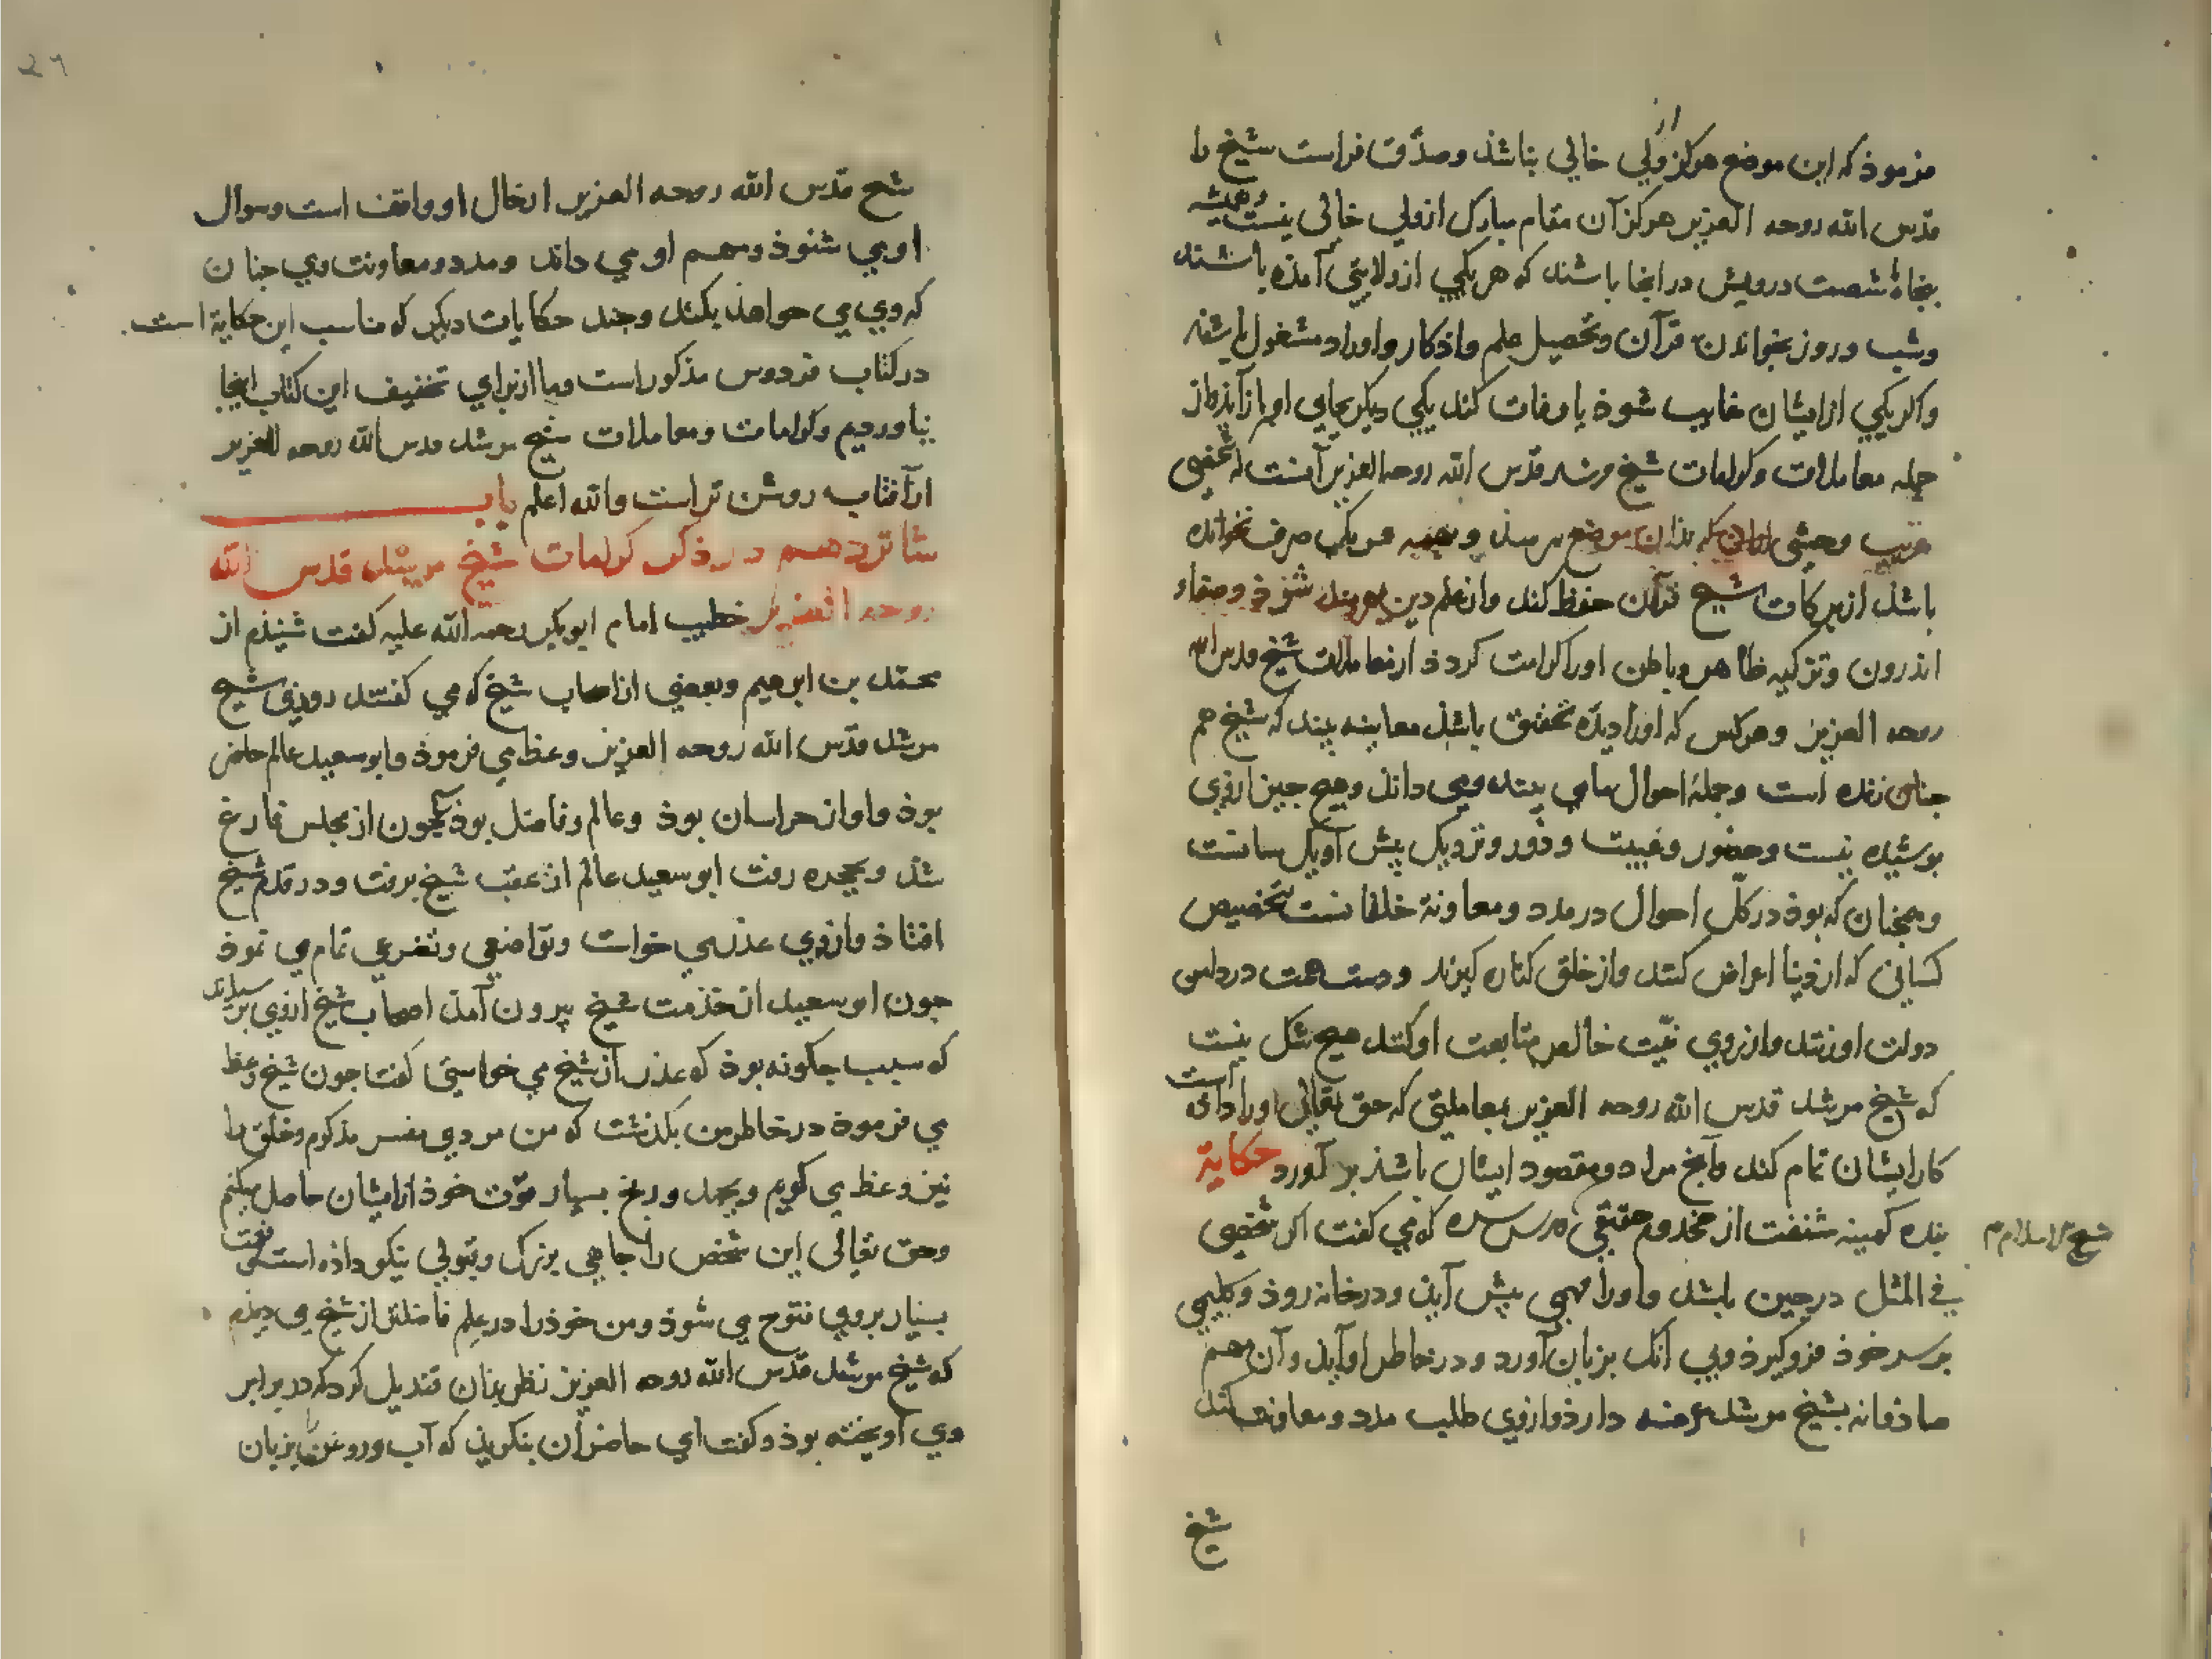 فرموذ که این موضع هرکز از ولی خالی نباشذ وصدّق فراست شیخ را
قدّس الله روحه العزیز هرکز آن مقام مبارک از ولی خالی نیست و همیشه
پنجاه شصت درویش در انجا باشند که هر یکی از ولایتی آمذه باشند
وشب و روز بخواندن قرآن وتحصیل علم واذکار و اوراد مشغول باشند
واکر یکی از ایشان غایب شوذ یا وفات کند یکی دیکر بجای او باز آید و از
جمله معاملات وکرامات شیخ مرشد قدّس الله روحه العزیز آنست که شخصی
غریب وحشی بذان موضع می رسذ و یک حرف نخوانده
باشد از برکات شیخ قرآن حفظ کند واز علم دین بهره مند شوذ و صفاء
اندرون وتزکیه ظاهر و باطن اورا کرامت کردذ از معاملات شیخ قدس الله
روحه العزیز وهرکس که اورا دیدهٔ تحقیق باشد معاینه بیند که شیخ هم
چنان زنده است وجملهٔ احوال ما می بیند ومی داند وهیچ چیز از وی
پوشیده نیست وحضور وغیبت ودور ونزدیک پیش او یکسانست
وهمچنان که بوذ در کلّ احوال در مدد ومعاونة خلقانست بتخصیص
کسانی که از دنیا اعراض کنند واز خلق کناره کیرند ودست همت در دامن
دولت او زنند واز روی نیّت خالص متابعت او کنند هیچ شک نیست
که شیخ مرشد قدس الله روحه العزیز بمعاملتی که حق تعالی اورا داده است
کار ایشان تمام کند وآنچ مراد ومقصود ایشان باشذ بر آورد حکایة
بنده کمینه شنفت از مخدوم حقیقی قدس سره که می کفت اکر شخصی
شیخ الاسلام
فی المثل در چین باشد واورا مهمی پیش آیذ ودر خانه روذ و کلیمی
بر سر خوذ فرو کیرذ وبی آنک بزبان آورد ودر خاطر او آید وآن مهم
صاذقانه بشیخ مرشد عرضه دارذ واز وی طلب مدد ومعاونت کند
شیخ
شیخ قدّس الله روحه العزیز از حال او واقف است وسوال
او می شنوذ ومهم او می داند ومدد ومعاونت وی چنان
که وی می خواهذ بکند وچند حکایات دیکر که مناسب این حکایة است
در کتاب فردوس مذکور است وما از برای تخفیف این کتاب اینجا
نیاوردیم وکرامات ومعاملات شیخ مرشد قدس الله روحه العزیز
از آفتاب روشن تر است والله اعلم باب
شانزدهم در ذکر کرامات شیخ مرشد قدس الله
روحه العزیز خطیب امام ابوبکر رحمه الله علیه کفت شنیذم از
محمد بن ابرهیم وبعضی از اصحاب شیخ که می کفتند روزی شیخ
مرشد قدّس الله روحه العزیز وعظ می فرموذ وابو سعید عالم حاضر
بوذ واو از خراسان بوذ وعالم وفاضل بوذ چون از مجلس فارغ
شد وبحجره رفت ابو سعید عالم از عقب شیخ برفت ودر قدم شیخ
افتاذ واز وی عذر می خواست وتواضعی وتضرعی تمام می نموذ
چون ابو سعید از خذمت شیخ بیرون آمذ اصحاب شیخ از وی پرسیدند
که سبب چکونه بوذ که عذر از شیخ می خواستی کفت چون شیخ وعظ
می فرموذ در خاطر من بکذشت که من مردی مفسر مذکرم وخلق را
نیز وعظ می کویم وبجهد ورنج بسیار قوّت خوذ از ایشان حاصل میکنم
وحق تعالی این شخص را جاهی بزرک وقبولی نیکو داذه است
بسیار بر وی فتوح می شوذ ومن خوذ را در علم فاضلتر از شیخ می دیدم
که شیخ مرشد قدّس الله روحه العزیز نظر بذان قندیل کرد که در برابر
وی آویخته بوذ وکفت ای حاضران بنکرید که آب وروغن بزبان